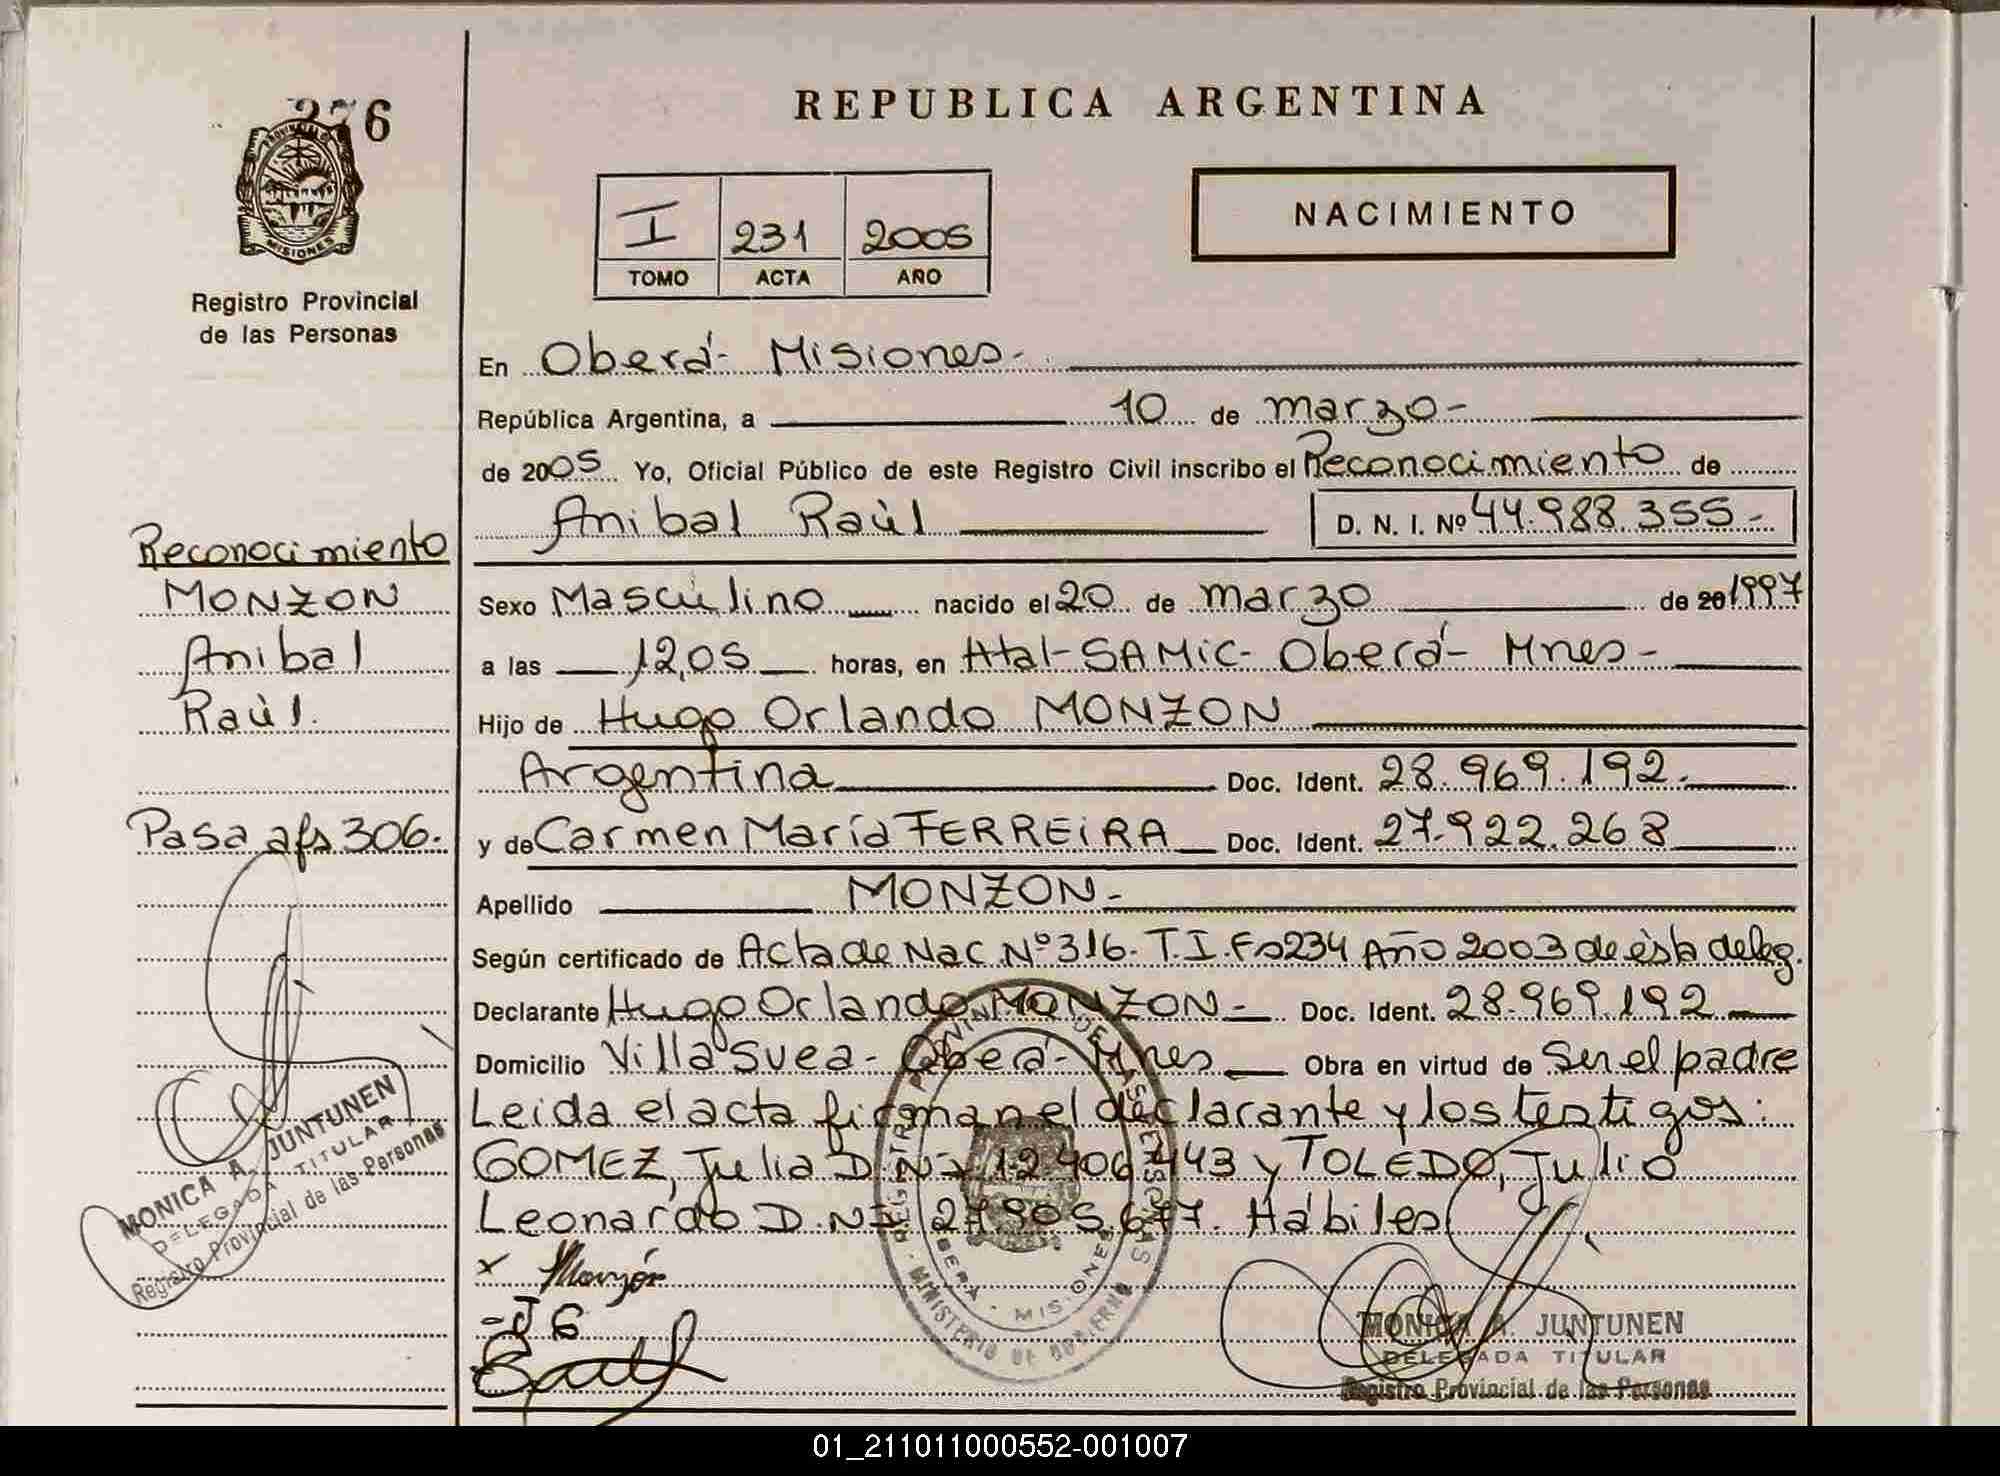 REPUBLICA ARGENTINA
PROVINCIA
MISIONES
Registro Provincial
de las Personas
I 231 2005
TOMO ACTA AÑO
NACIMIENTO
En Oberá- Misiones-
República Argentina, a 10 de marzo-
de 2005 Yo, Oficial Público de este Registro Civil inscribo el Reconocimiento de
Anibal Raùl D. N. I. Nº 44.988.355-
Sexo Masculino nacido el 20 de marzo de 20 1997
a las 12,05 horas, en Htal-SAMIC- Oberá- Mnes-
Hijo de Hugo Orlando MONZON
Argentina Doc. Ident. 28.969.192.
y de Carmen María FERREIRA Doc. Ident. 27.922.268
Apellido MONZON-
Según certificado de Acta de Nac Nº316- T.I. Fº234 Año 2003 de èsta deleg.
Declarante Hugo Orlando MONZON- Doc. Ident. 28.969.192
Domicilio Villa Svea- Oberá- Mnes Obra en virtud de Ser el padre
Leida el acta firman el declarante y los testigos:
GOMEZ, Julia D.N.I 12.406.443 y TOLEDO, Julio
Leonardo D.N.I. 27.905.677. Hábiles
x Monzón
-J G
MONICA A. JUNTUNEN
DELEGADA TITULAR
Registro Provincial de las Personas
Reconocimiento
MONZON
Anibal
Raùl.
Pasa a fs 306.
MONICA A. JUNTUNEN
DELEGADA TITULAR
Registro Provincial de las Personas
01_211011000552-001007